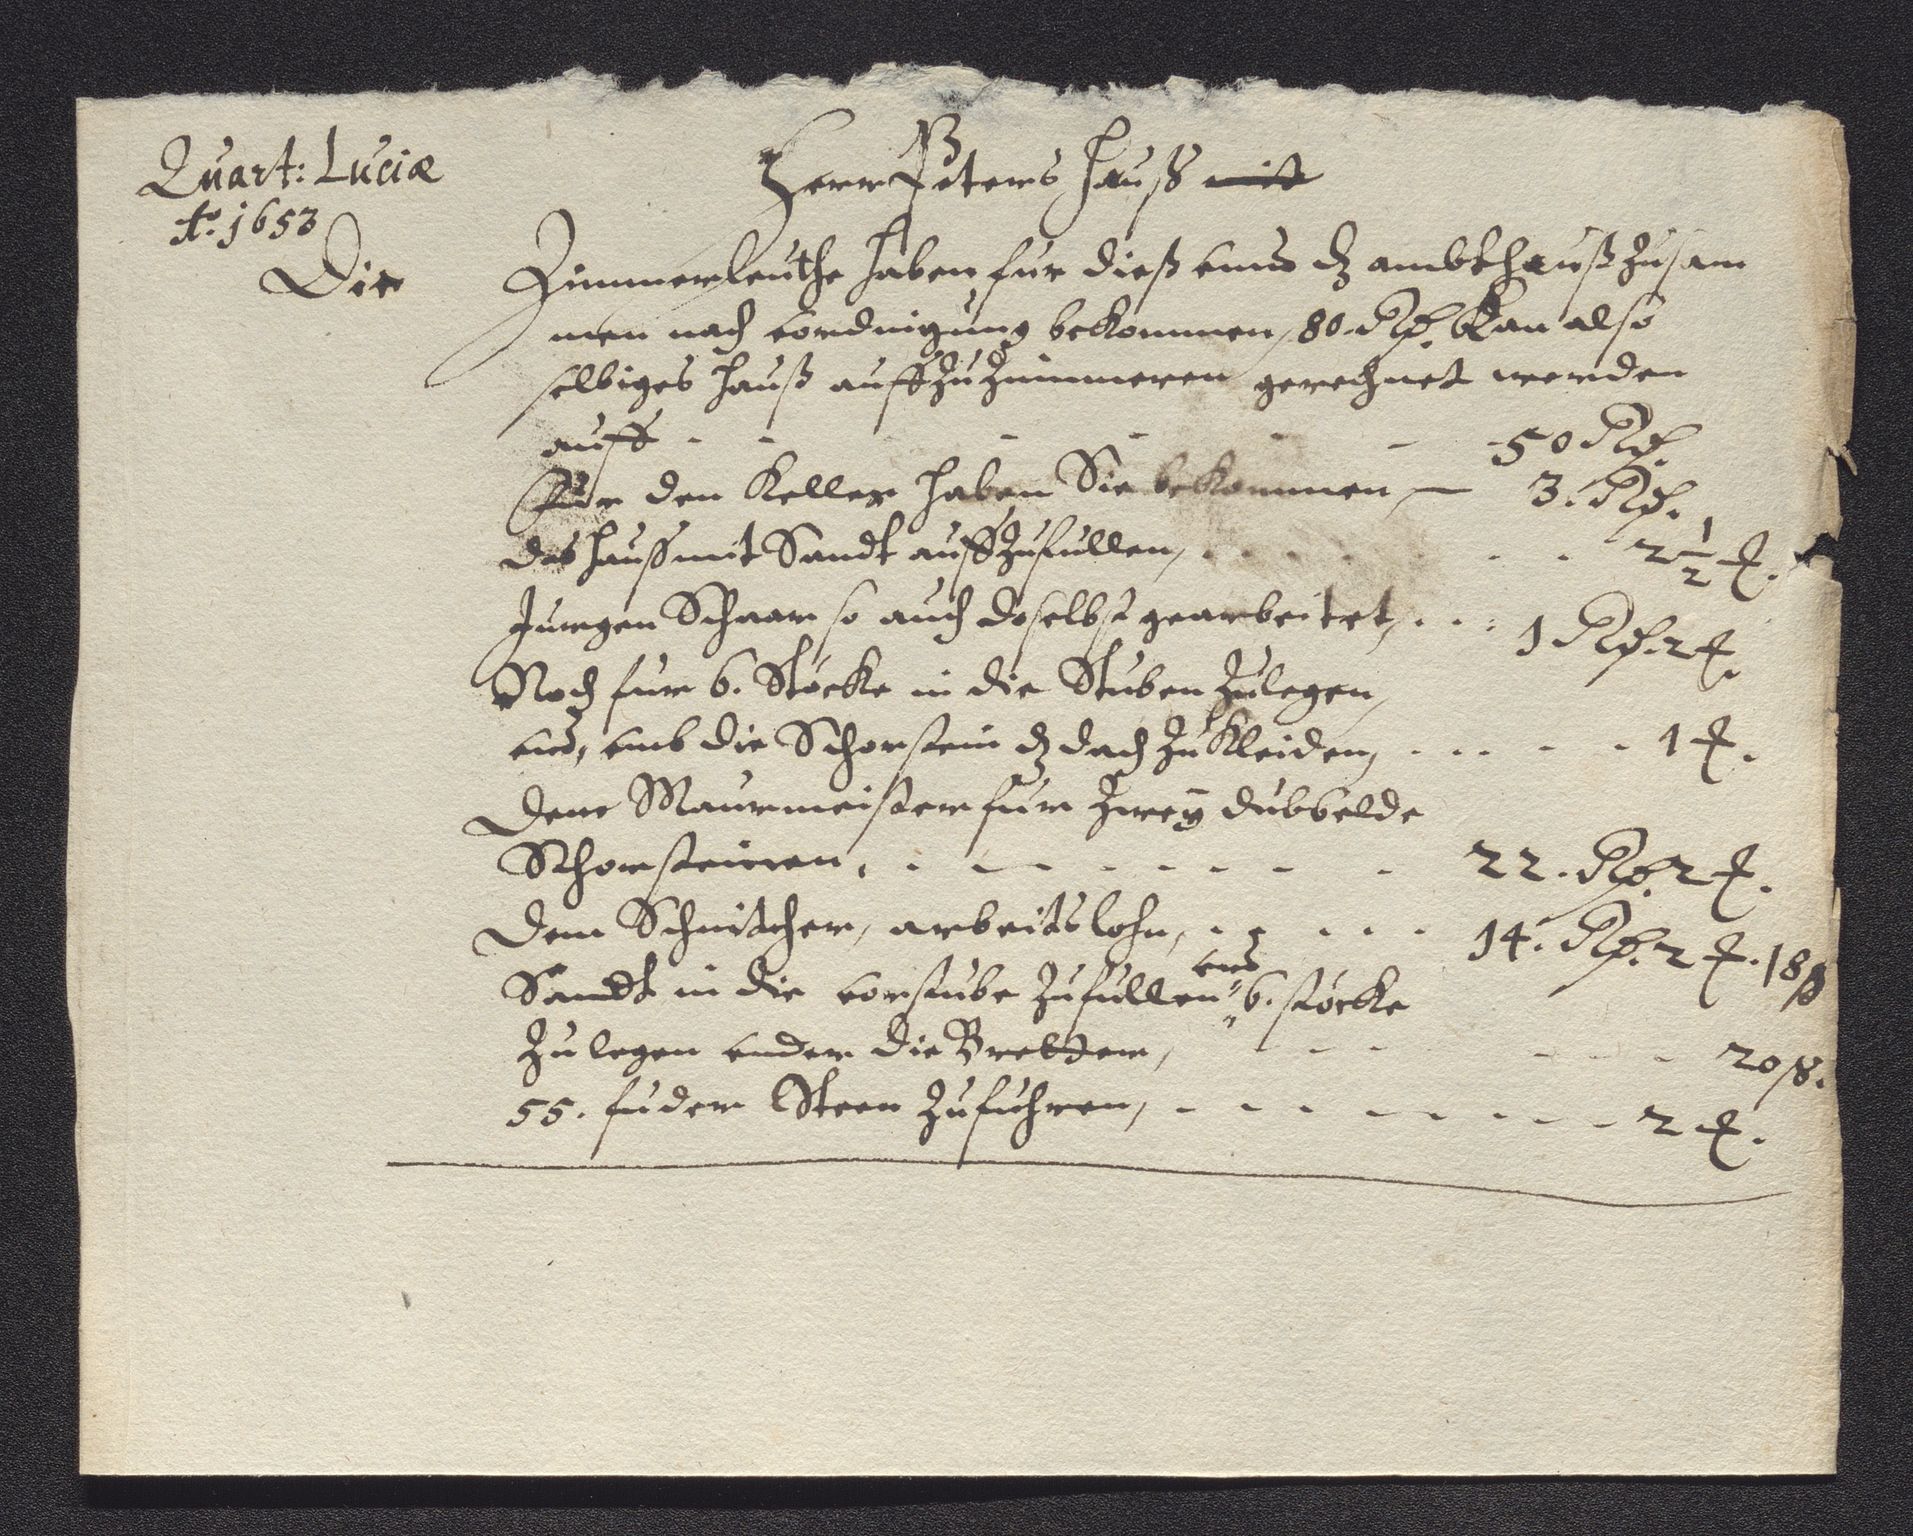 Quart: Luciæ
Ao. 1653
Herr Peters Hauß mit
Die Zimmerleuthe haben fur dieß vnd dz ambthauß zusam
men nach vordingung bekommen, 80. Rthr. Kan also
selbiges Hauß auffzuzimmeren gerechnet werden
auff - - - - - - 50 Rthr.
Fur den Keller haben Sie bekommen, - 3. Rthr.
das Hauß mit Sandt auffzufullen, - - - - - - 2 1/2 ℳ.
Jurgen Schaar so auch doselbst gearbeitet, - - - 1 Rthr. 2 ℳ.
Noch fur 6. Stöcke in die Stuben zulegen,
vnd, vmb die Schorstein dz dach zu Kleiden, - - - - - 1 ℳ.
Dem Maurmeister fur zweÿ dubbelde
Schorsteinen, - - - - - - - - 22. Rthr. 2 ℳ.
Dem Schnitcher, arbeitslohn, - - - - - 14. Rthr. 2 ℳ. 18 ß
Sandt in die vorstube zufullen vnd 6. stöcke
zulegen vnder die Bretter, - - - - - - 20 ß.
55. fuder Steen zufuhren, - - - - - - - 2 ℳ.